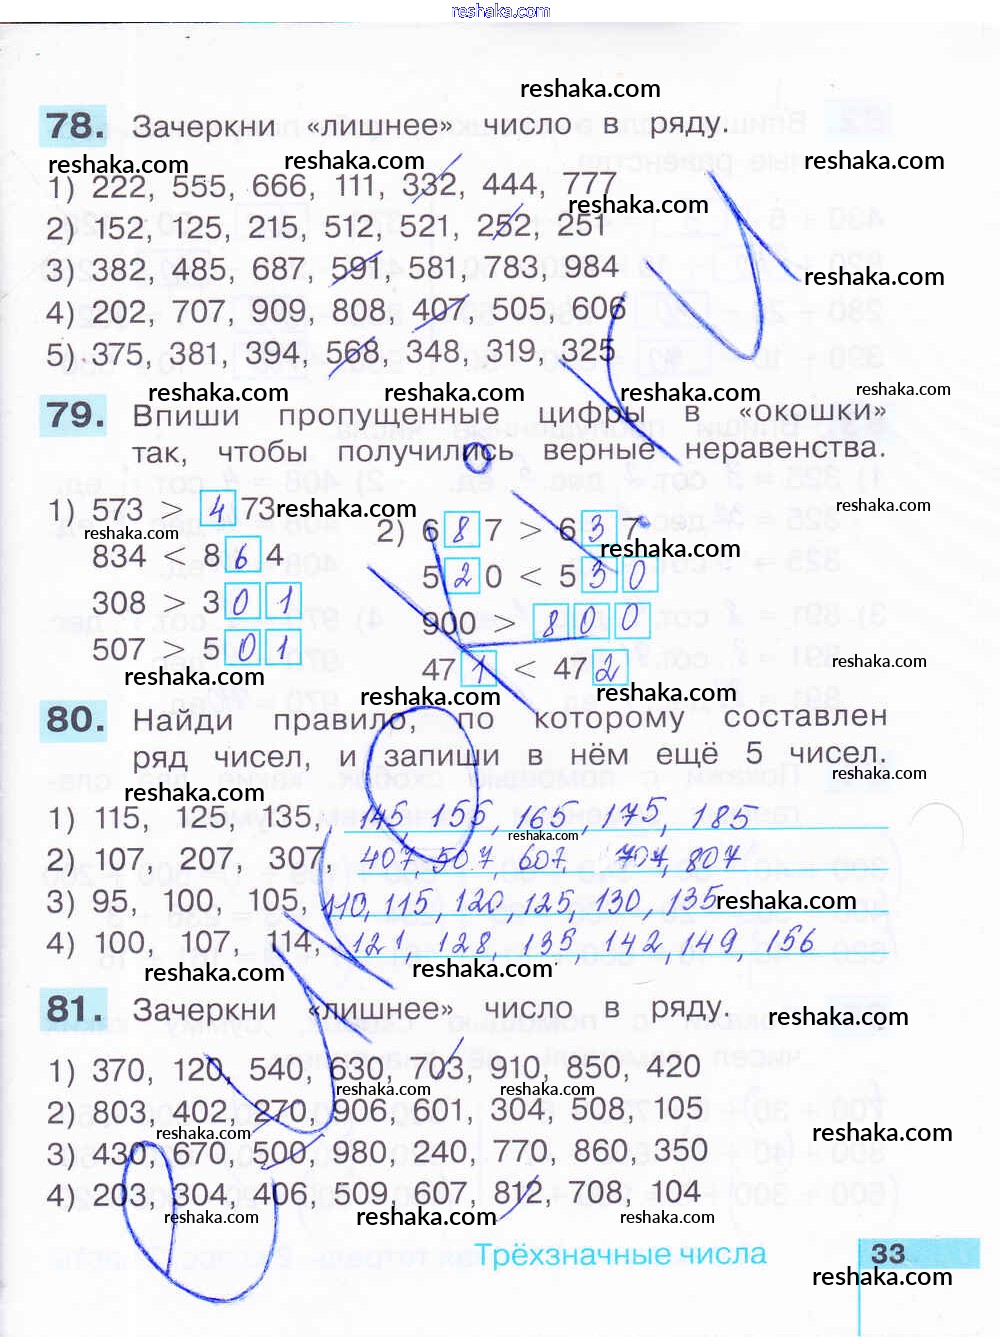 reshaka.com
reshaka.com
78. Зачеркни «лишнее» число в ряду.
reshaka.com reshaka.com reshaka.com
1) 222, 555, 666, 111, 332, 444, 777
reshaka.com
2) 152, 125, 215, 512, 521, 252, 251
3) 382, 485, 687, 591, 581, 783, 984
reshaka.com
4) 202, 707, 909, 808, 407, 505, 606
5) 375, 381, 394, 568, 348, 319, 325
reshaka.com reshaka.com reshaka.com reshaka.com
79. Впиши пропущенные цифры в «окошки»
так, чтобы получились верные неравенства.
1) 573 > 473
reshaka.com reshaka.com
2) 687 > 637
reshaka.com
834 < 864
520 < 530
308 > 301
900 > 800
507 > 501
reshaka.com
471 < 472
reshaka.com reshaka.com reshaka.com
80. Найди правило, по которому составлен
ряд чисел, и запиши в нём ещё 5 чисел.
reshaka.com
1) 115, 125, 135, 145, 155, 165, 175, 185
reshaka.com
2) 107, 207, 307, 407, 507, 607, 707, 807
3) 95, 100, 105, 110, 115, 120, 125, 130, 135
reshaka.com
4) 100, 107, 114, 121, 128, 135, 142, 149, 156
reshaka.com reshaka.com
81. Зачеркни «лишнее» число в ряду.
reshaka.com
1) 370, 120, 540, 630, 703, 910, 850, 420
reshaka.com reshaka.com
2) 803, 402, 270, 906, 601, 304, 508, 105
reshaka.com reshaka.com
3) 430, 670, 500, 980, 240, 770, 860, 350
4) 203, 304, 406, 509, 607, 812, 708, 104
reshaka.com reshaka.com reshaka.com
Трёхзначные числа 33
reshaka.com